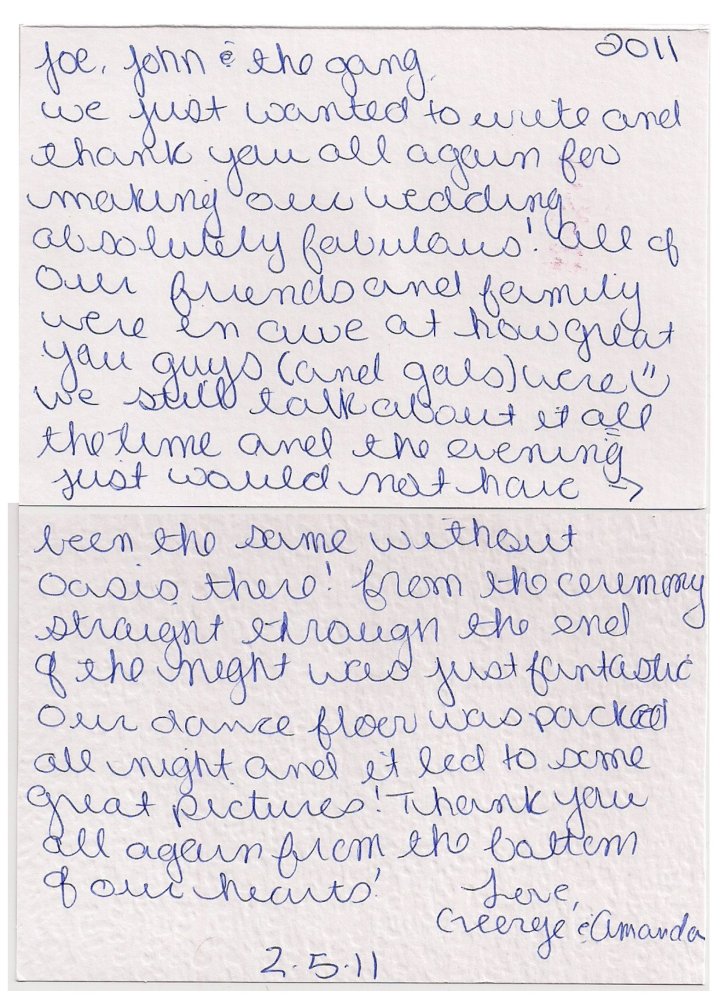 2011
Joe, John & the gang,
we just wanted to write and
thank you all again for
making our wedding
absolutely fabulous! All of
our friends and family
were in awe at how great
you guys (and gals) were :)
we still talk about it all
the time and the evening
just would not have →
been the same without
Oasis there! From the ceremony
straight through the end
of the night was just fantastic
Our dance floor was packed
all night and it led to some
great pictures! Thank you
all again from the bottom
of our hearts!
Love,
George & Amanda
2.5.11